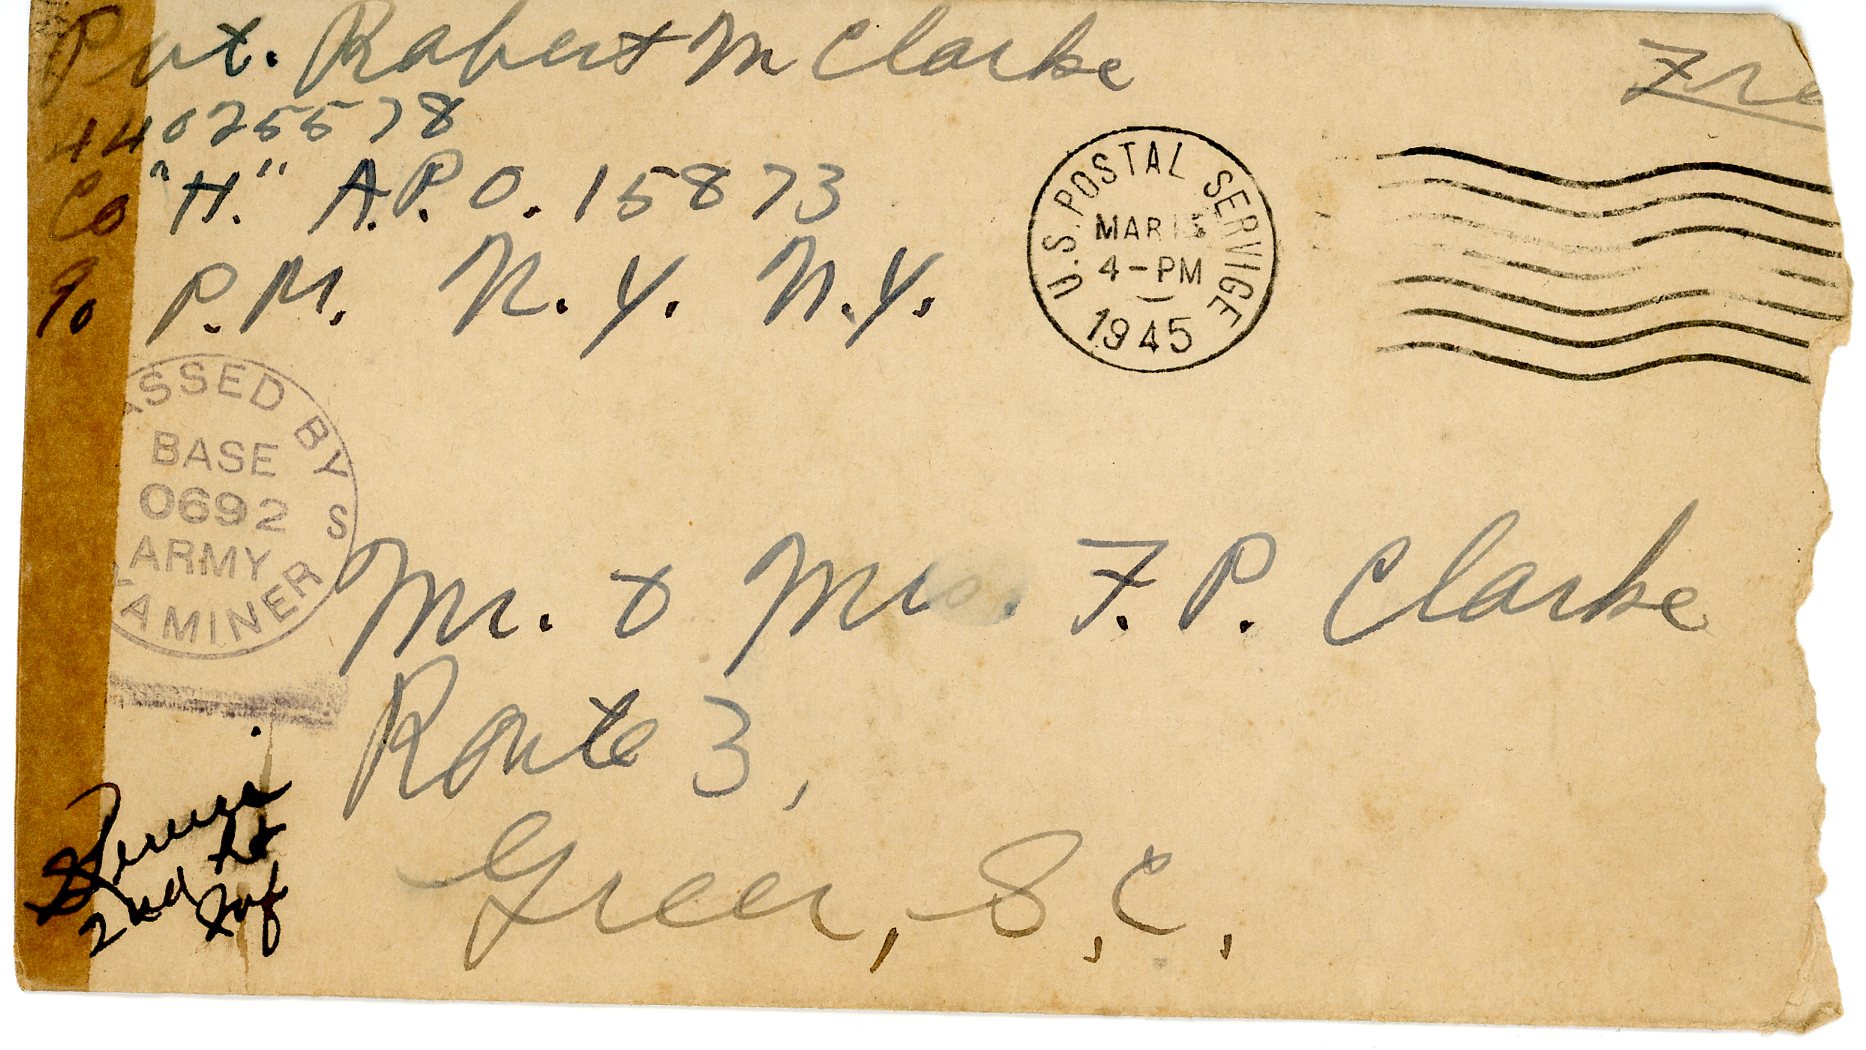 Pvt. Robert M Clarke
Fre
44025578
Co "H." A.P.O. 15873
% P.M. N.Y. N.Y.
U.S. POSTAL SERVICE
MAR 15
4-PM
1945
ASSED BY
BASE
0692
ARMY
S
AMINER
Mr. & Mrs. F. P. Clarke
Route 3,
Greer, S.C.
2nd Lt
Inf